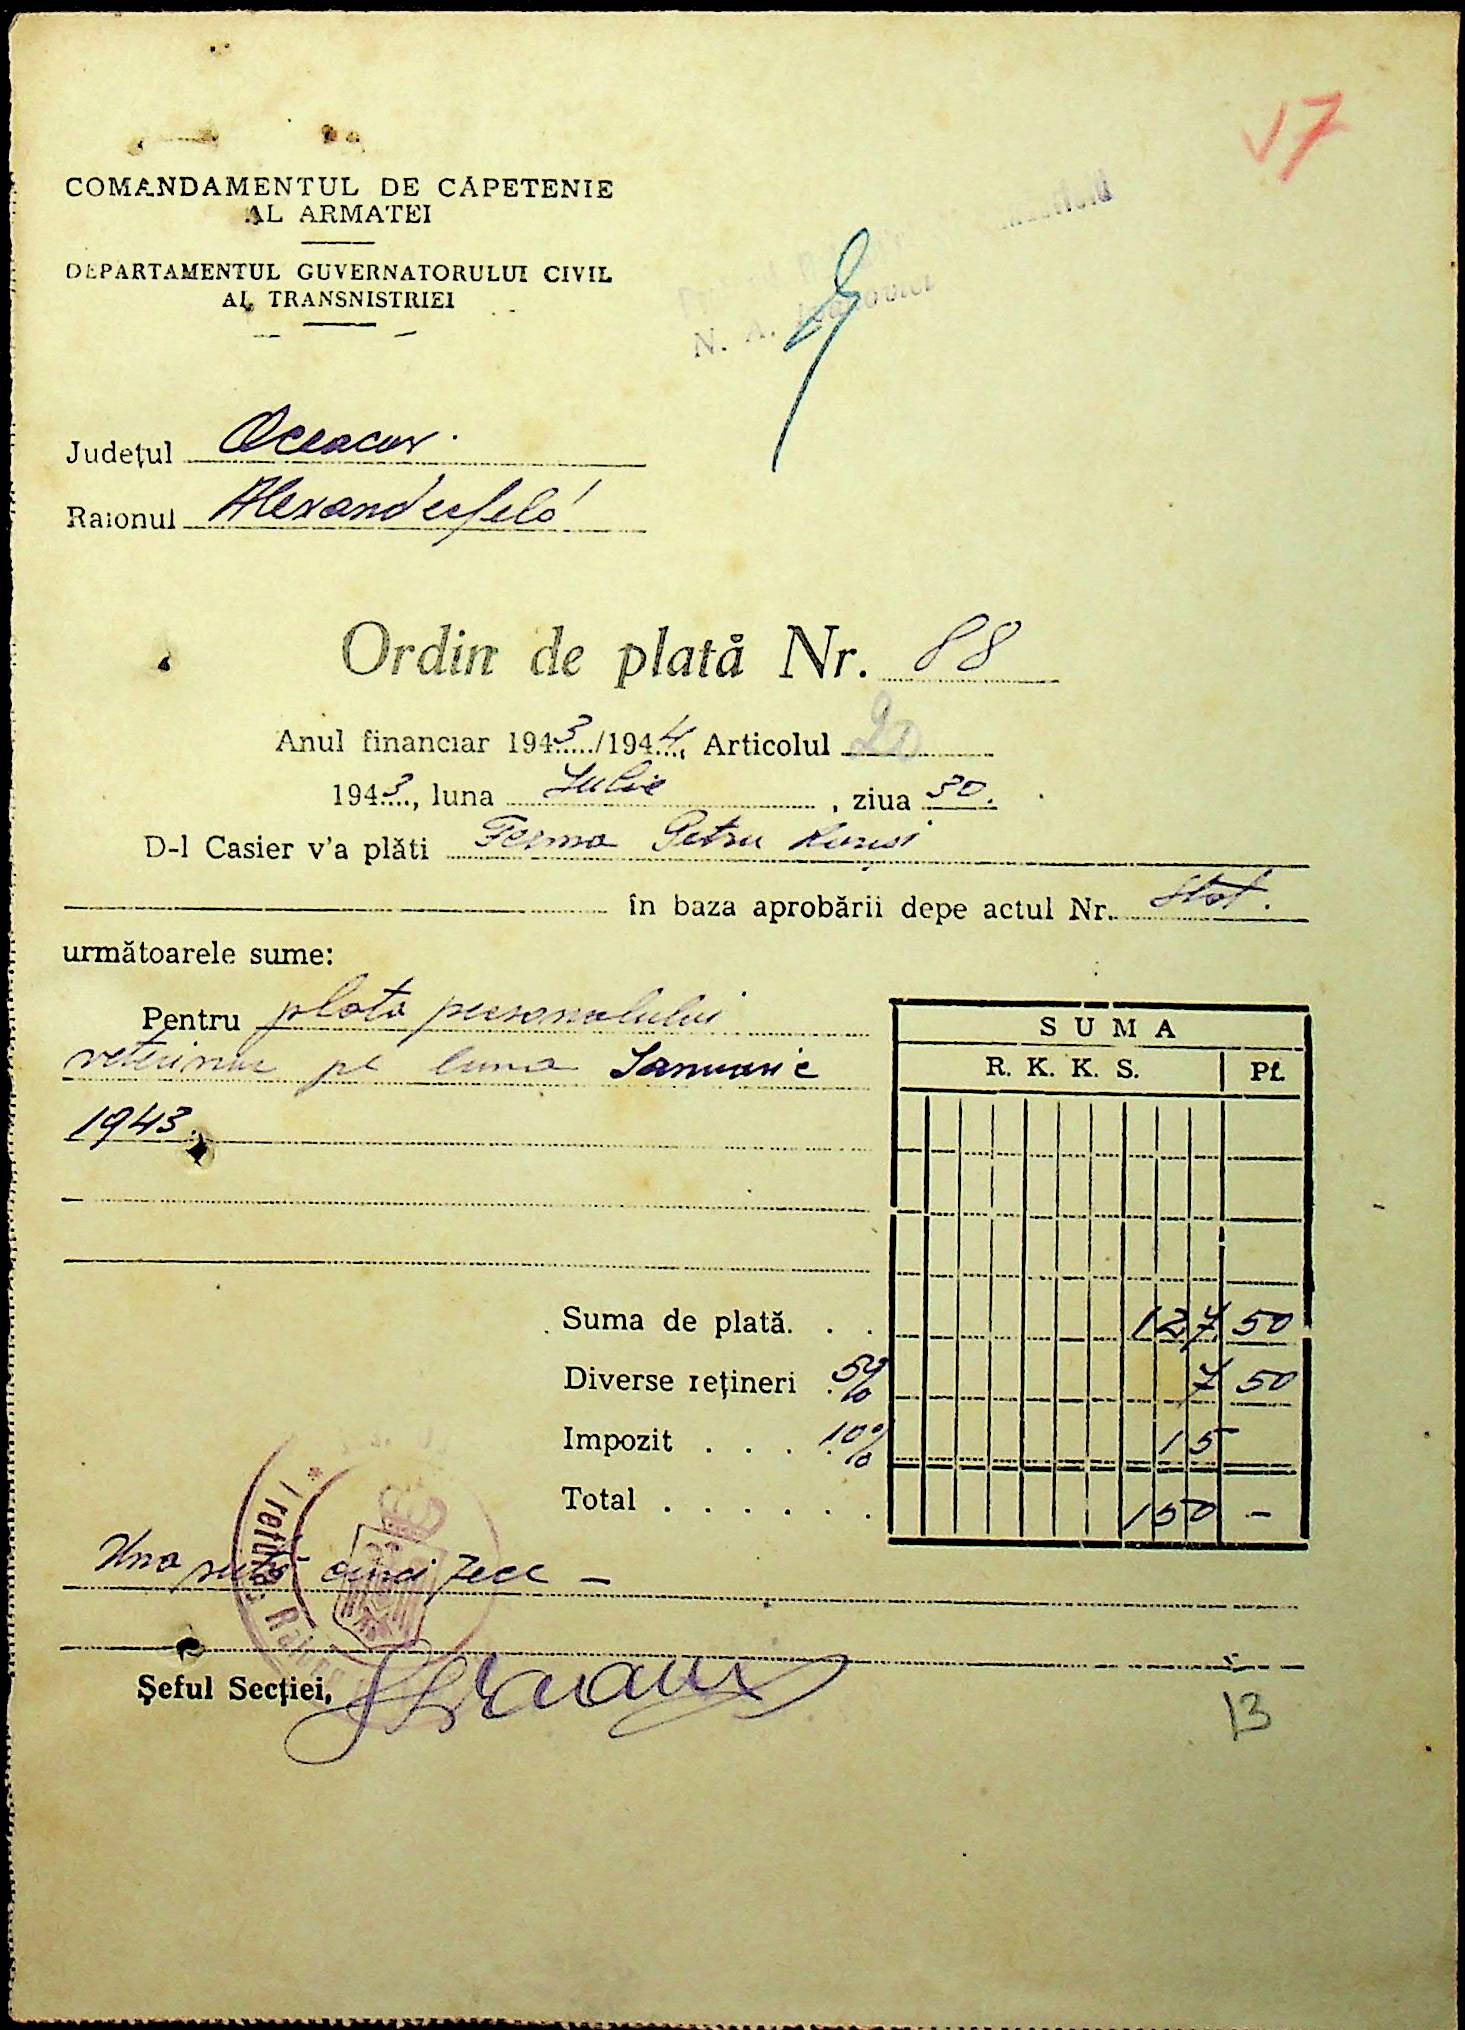 17
COMANDAMENTUL DE CĂPETENIE
AL ARMATEI
DEPARTAMENTUL GUVERNATORULUI CIVIL
AL TRANSNISTRIEI
N. A.
Județul Oceacov.
Raionul Alexanderfeld
Ordin de plată Nr. 88
Anul financiar 1943/1944, Articolul 20
1943, luna Iulie, ziua 30.
D-l Casier v'a plăti Ferma Petru
în baza aprobării depe actul Nr. Stat.
următoarele sume:
Pentru plata personalului
veterinar pe luna Ianuarie
1943.
SUMA
R. K. K. S. Pf.
Suma de plată. . . 127 50
Diverse rețineri . 5% 7 50
Impozit . . . . 10% 15
Total . . . . . . 150 —
Una sută cinci zece —
Pretura Raion
Șeful Secției,
13